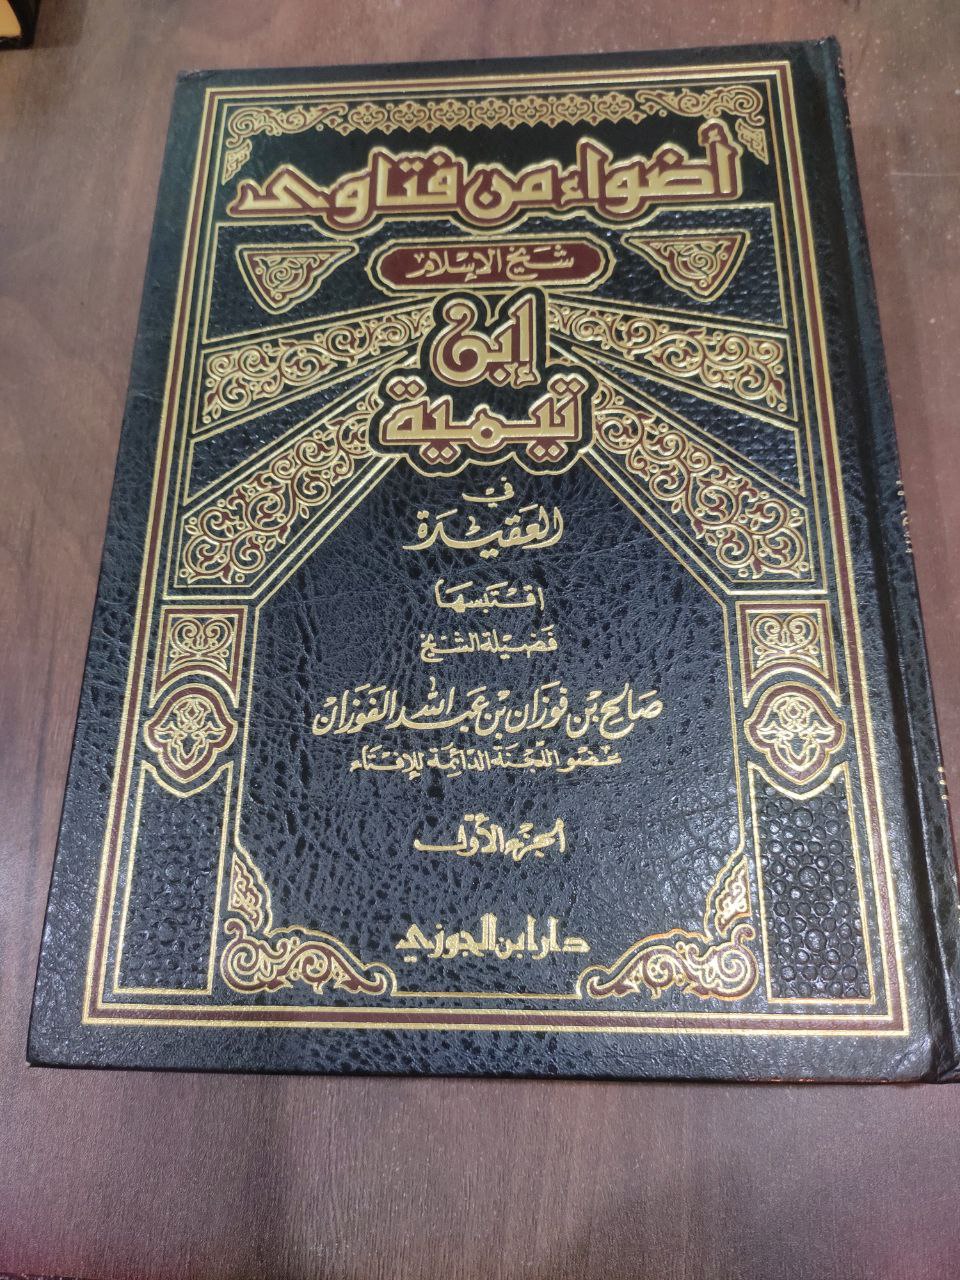 أضواء من فتاوى
شيخ الإسلام
إبن
تيمية
في
العقيدة
اقتبسها
فضيلة الشيخ
صالح بن فوزان بن عبد الله الفوزان
عضو اللجنة الدائمة للإفتاء
الجزء الأول
دار ابن الجوزي